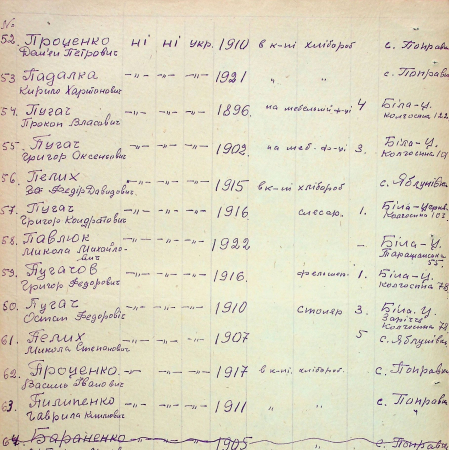 №
52. Проценко ні ні укр. 1910 в к-пі хлібороб с. Поправка
Дам'ян Петрович
53 Падалка -"- -"- -"- 1921 " " с. Поправка
Кирило Харитонович
54. Пугач -"- -"- -"- 1896 на мебельній ф-ці 4 Біла-Ц.
Прокоп Власович колгоспна 122
55. Пугач -"- -"- -"- 1902 на меб. ф-ці 3. Біла-Ц.
Григор Оксентович Колгоспна 101
56. Пелих -"- -"- -"- 1915 в к-пі хлібороб с. Яблунівка
Федір Давидович.
57. Пугач -"- -"- -"- 1916 слесар. 1. Біла-Церкв.
Григор Кондратович Колгоспна 101
58. Павлюк -"- -"- -"- 1922 - Біла-Ц.
Микола Михайло- Таращанська
вич 55.
59. Пугачов -"- -"- -"- 1916. фельшер 1. Біла-Ц.
Григор Федорович колгоспна 78
60. Пугач -"- -"- -"- 1910 Столяр 3. Біла. Ц.
Остап Федорович Заріччя
Колгоспна 78
61. Пелих -"- -"- -"- 1907 5 с. Яблунівка
Микола Степанович
62. Проценко -"- -"- -"- 1917 в к-пі. хлібороб. с. Поправка
Василь Іванович
63. Пилипенко -"- -"- -"- 1911 " " с. Поправка
Гаврила Климович
64. Бараненко -"- -"- 1905 с. Поправка